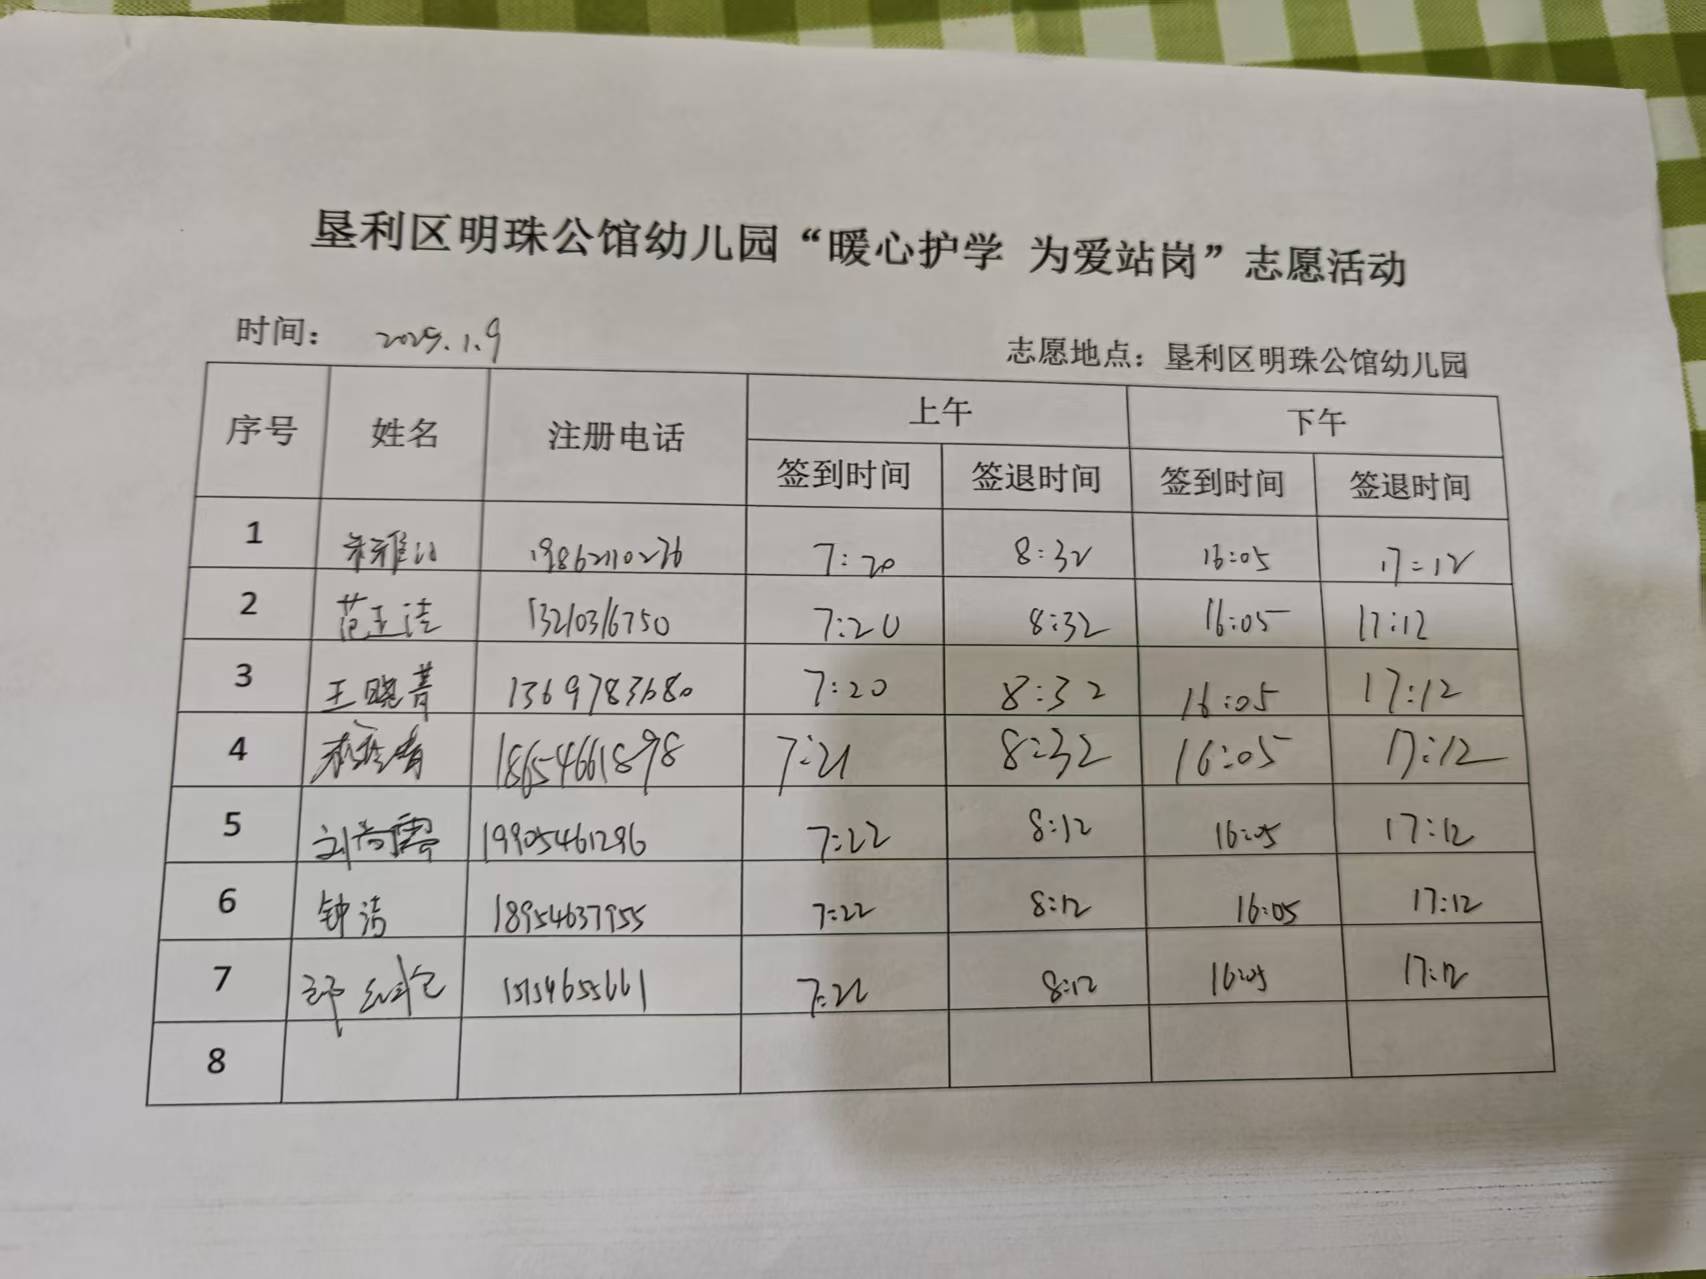 垦利区明珠公馆幼儿园“暖心护学 为爱站岗”志愿活动
时间： 2025.1.9 志愿地点：垦利区明珠公馆幼儿园
序号 姓名 注册电话 上午 下午
签到时间 签退时间 签到时间 签退时间
1 19862110236 7:20 8:32 16:05 17:12
2 范玉洁 13210316750 7:20 8:32 16:05 17:12
3 王晓菁 1369783680 7:20 8:32 16:05 17:12
4 18654661898 7:21 8:32 16:05 17:12
5 刘尚霞 19905461296 7:22 8:12 16:05 17:12
6 钟洁 18954637955 7:22 8:12 16:05 17:12
7 15154655661 7:22 8:12 16:05 17:12
8